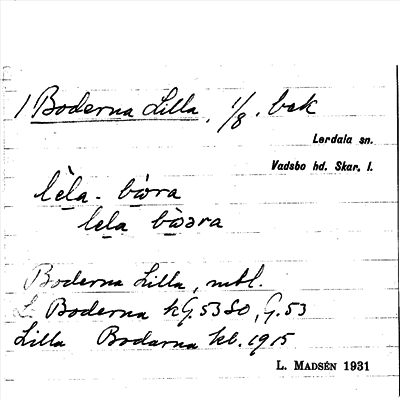 1 Boderna Lilla, 1/8. bek
Lerdala sn.
Vadsbo hd. Skar. l.
lèla - bωra
lela bωəra
Boderna Lilla, mbl.
L. Boderna kG.53SO, G.53
Lilla Bodarna kb. 1915
L. MADSÉN 1931